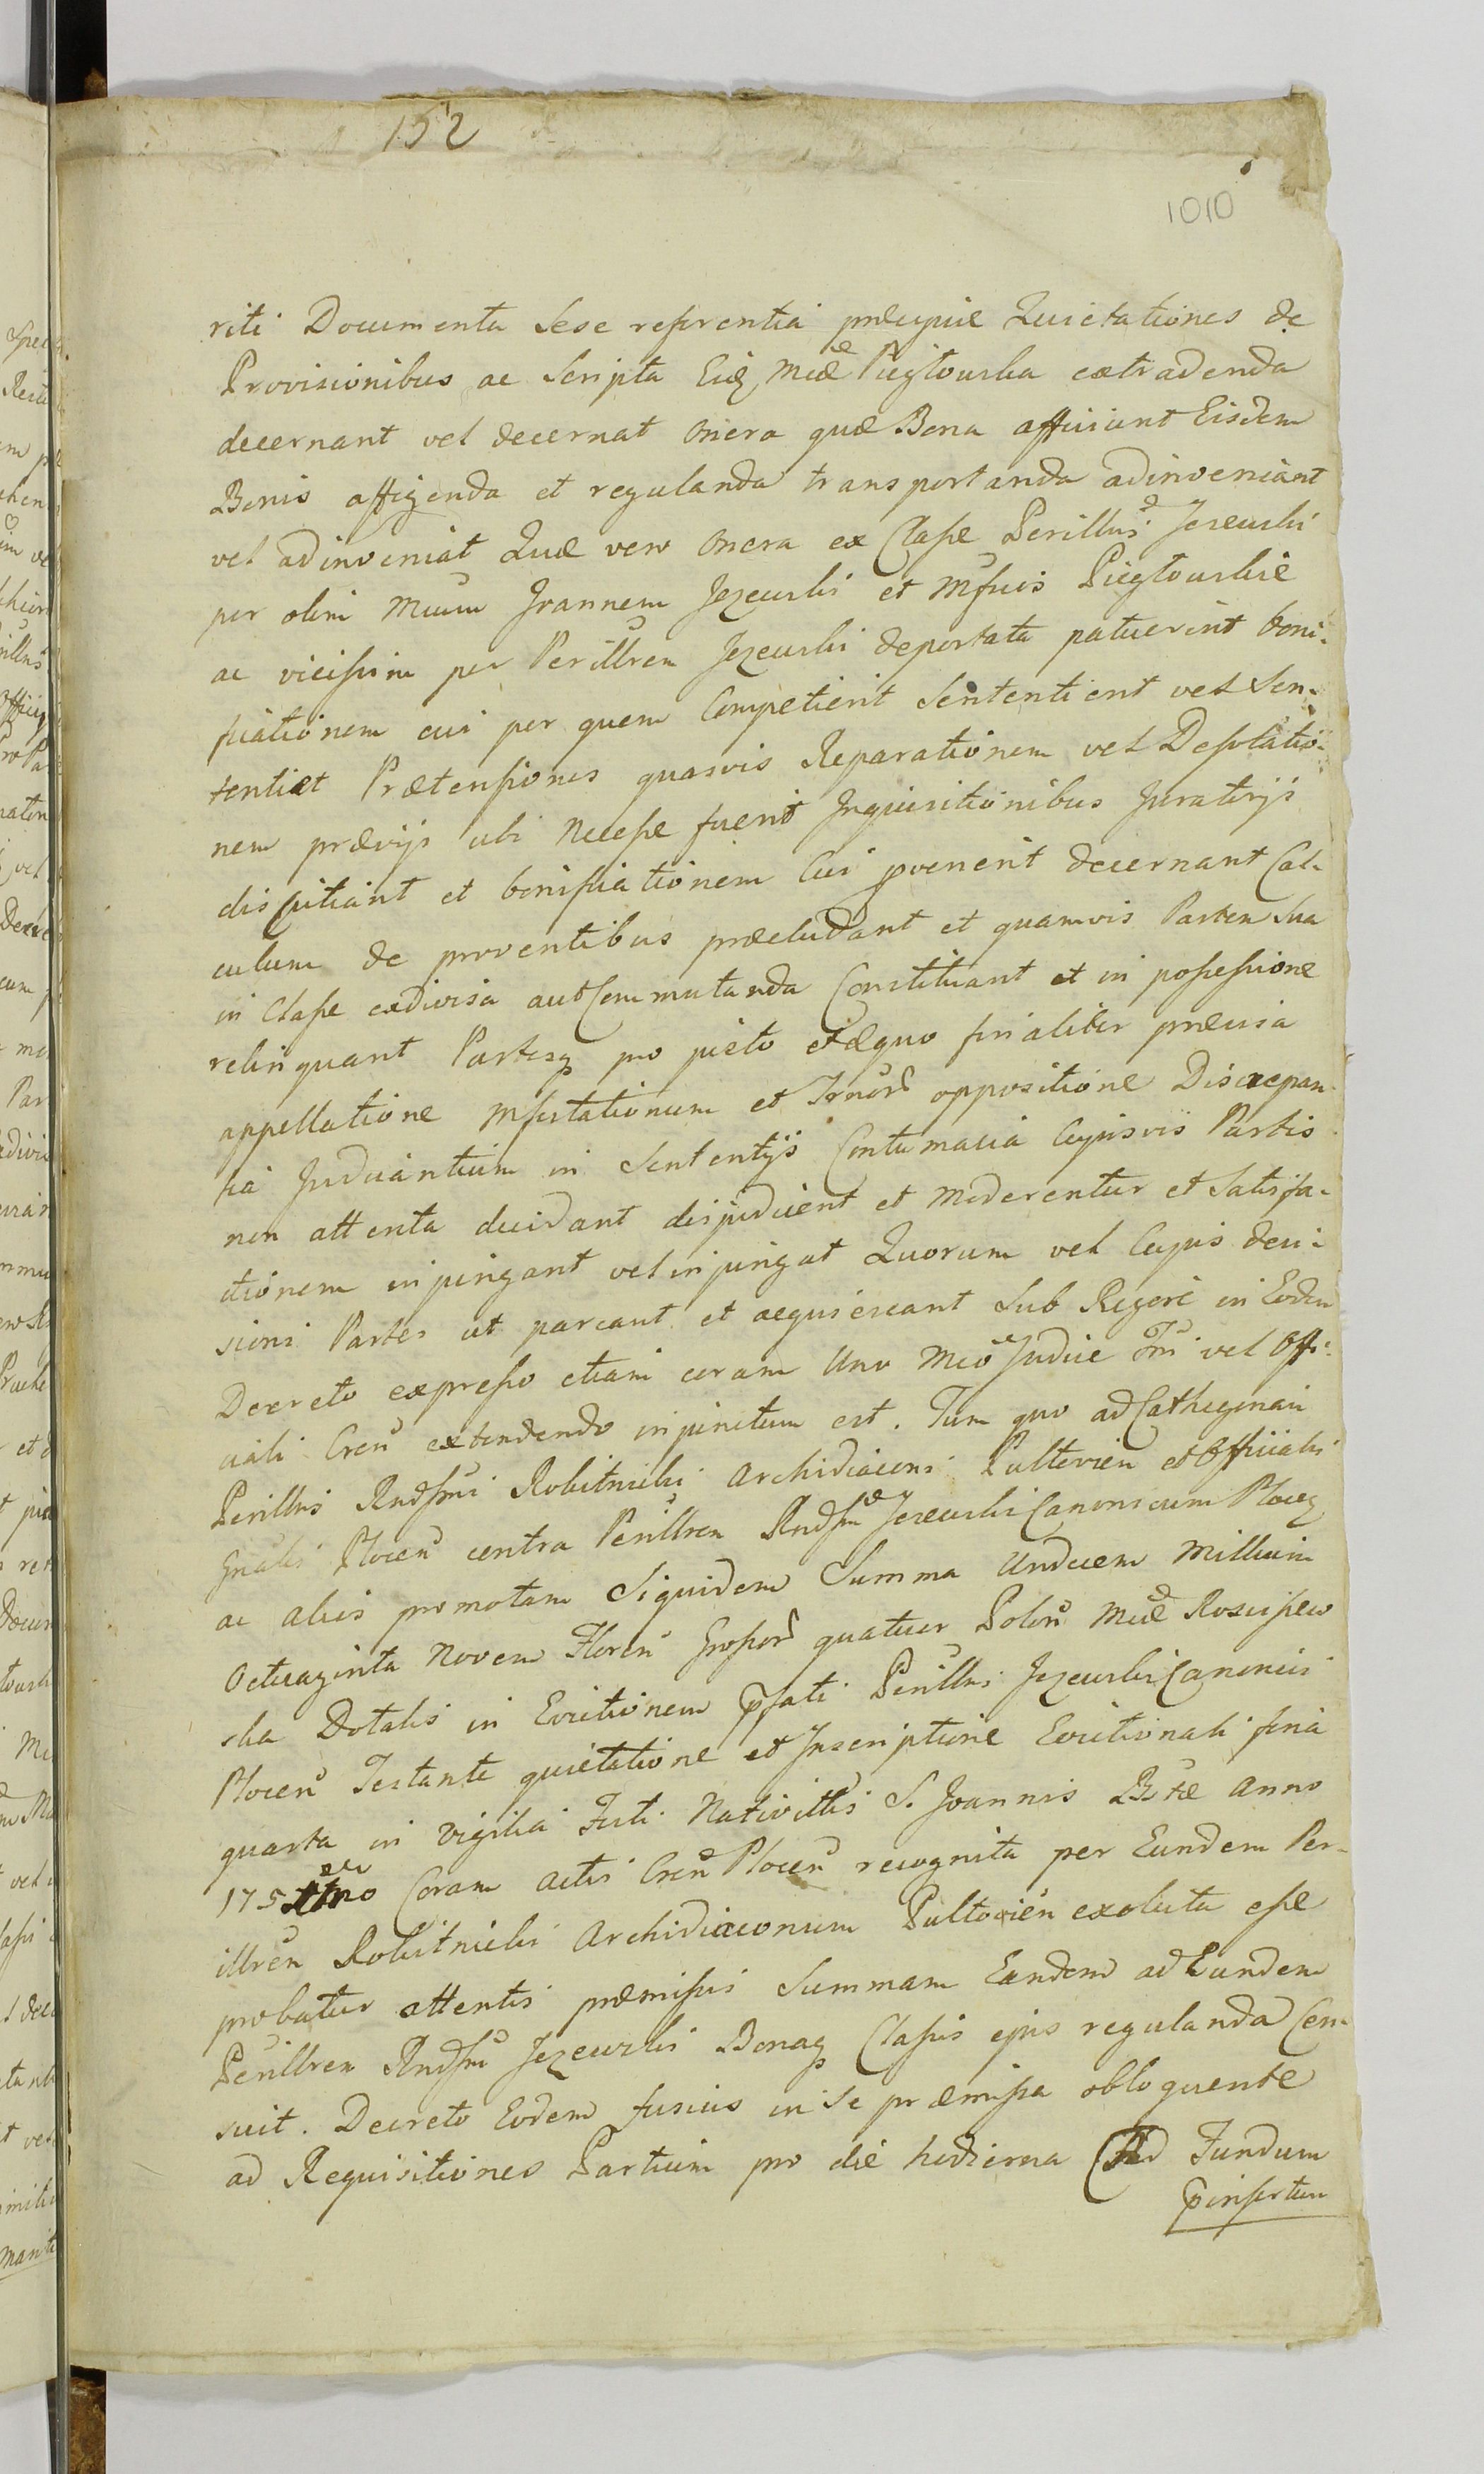 152
1010
riti Documenta Sese referentia præcipue Quietationes de
Provisionibus ac Scripta Eidẽ Mcæ Piegłowska extradenda
decernant vel decernat Onera quæ Bona afficiunt Eisdem
Bonis affigenda et regulanda transportanda adinveniant
vel adinveniat Quæ vero Onera ex Classe Perillus Jezewski
per olim Mcum Joannem Jezewski et Piegłowskie
ac vicissim per Perillrem Jezewski deportata patuerint boni-
ficationem cui per quem Competierit Sententient vel Sen-
tentiet Prætensiones quasvis Reparationem vel Desolatio-
nem prævijs ubi Necesse fuerit Inquisitionibus Juratorijs
discutiant et bonificationem Cui pvenerit decernant Cal-
culum de proventibus præcludant et quamvis Partem Sua
in Classe exdivisa aut Commutanda Constituant et in possessione
relinquant Partesq pro justo et æquo finaliter præcisa
appellatione Mfestationum et oppositione Discrepan-
tia Judicantium in Sententijs Contumacia Cujusvis Partis
non attenta decidant dijudicent et moderentur et Satisfa-
ctionem injungant vel injungat Quorum vel Cujus deci-
sioni Partes ut pareant et acquiescant Sub Rigore in Eodem
Decreto expresso etiam coram Uno Mco Judice Tri vel Offi-
ciali Cren extendendo injunctum est. Tum quo ad Cathegoriam
Perillris Rndssmi Rokitnicki Archidiaconi Pultovien et Officialis
Gnalis Plocen contra Perillrem Rndssm Jezewski Canonicum Plocen
ac alios promotam Siquidem Summa Undecem Millium
Octuaginta Novem Floren Grossor quatuor Polon Mcæ Rosciszew
ska Dotalis in Evictionem pfati Perillris Jezewski Canonici
Plocen Testante quietatione et Inscriptione Evictionali feria
quarta in vigilia Festi Nativittis S. Joannis Btæ Anno
175 Coram Actis Cren Plocen recognita per Eundem Per-
illrem Rokitnicki Archidiaconum Pultovien exoluta esse
probatur attentis præmissis Summam Eandem ad Eundem
Perillrem Rndssm Jezewski Bonaq Classis ejus regulanda Cen-
suit. Decreto Eodem fusius in Se præmissa obloquente
ad Requisitiones Partium pro die hodierna Ad Fundum
pinsertum